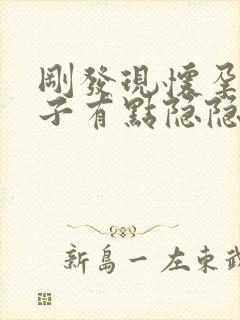 剛發現懷孕
子有點隐隐
新島一 左東武